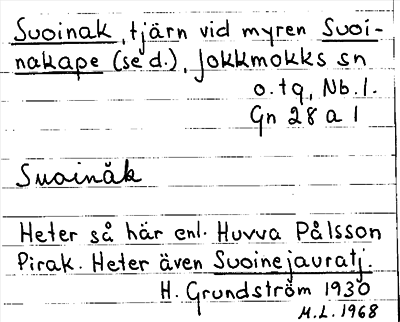 Suoinak, tjärn vid myren Suoi-
nakape (se d.), Jokkmokks sn
o. tg, Nb. l.
Gn 28 a 1
Suoinåk
Heter så här enl. Huvva Pålsson
Pirak. Heter även Suoinejauratj.
H. Grundström 1930
M.L. 1968